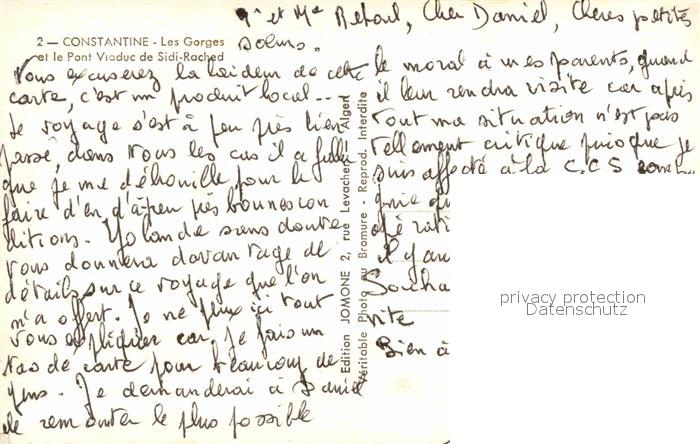 Mr et Me Reboul, Cher Daniel, Chères petites
soeurs.
2 — CONSTANTINE - Les Gorges
et le Pont Viaduc de Sidi-Rached
Vous excuserez la laideur de cette
carte, c'est un produit local...
Le voyage s'est à peu près bien
passé, dans tous les cas il a fallu
que je me débrouille pour le
faire d'en d'à-peu près bonnes con
ditions. Yolande sans doute
vous donnera davantage de
détails sur ce voyage que l'on
m'a offert. Je ne peux ici tout
vous expliquer car je fais un
tas de carte pour beaucoup de
gens. Je demanderai à Daniel
de remonter le plus possible
Edition JOMONE 2, rue Levacher - Alger
Véritable Photo au Bromure - Reprod. Interdite
le moral à mes parents, quand
il leur rendra visite car après
tout ma situation n'est pas
tellement critique puisque je
suis affecté à la C.C.S
gnie
il y au
Souha
vite
Bien à
privacy protection
Datenschutz